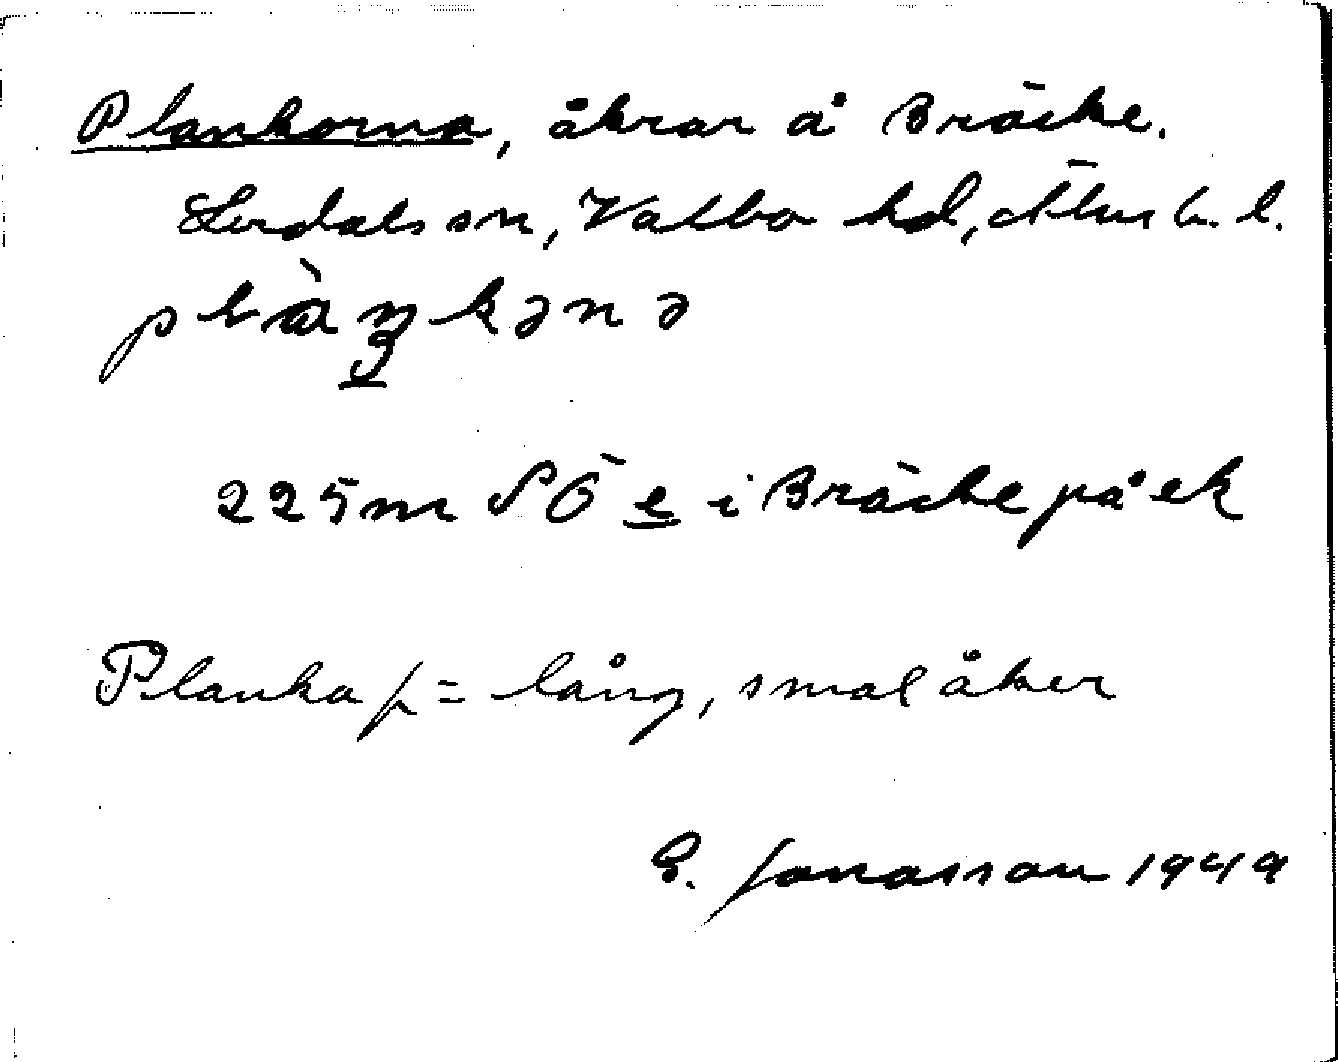 Plankorna, åkrar å Bräcke.
Lerdals sn, Valbo hd, Älvsb. l.
225 m SÖ e i Bräcke på ek
Planka f = lång, smal åker
E. Jonasson 1949